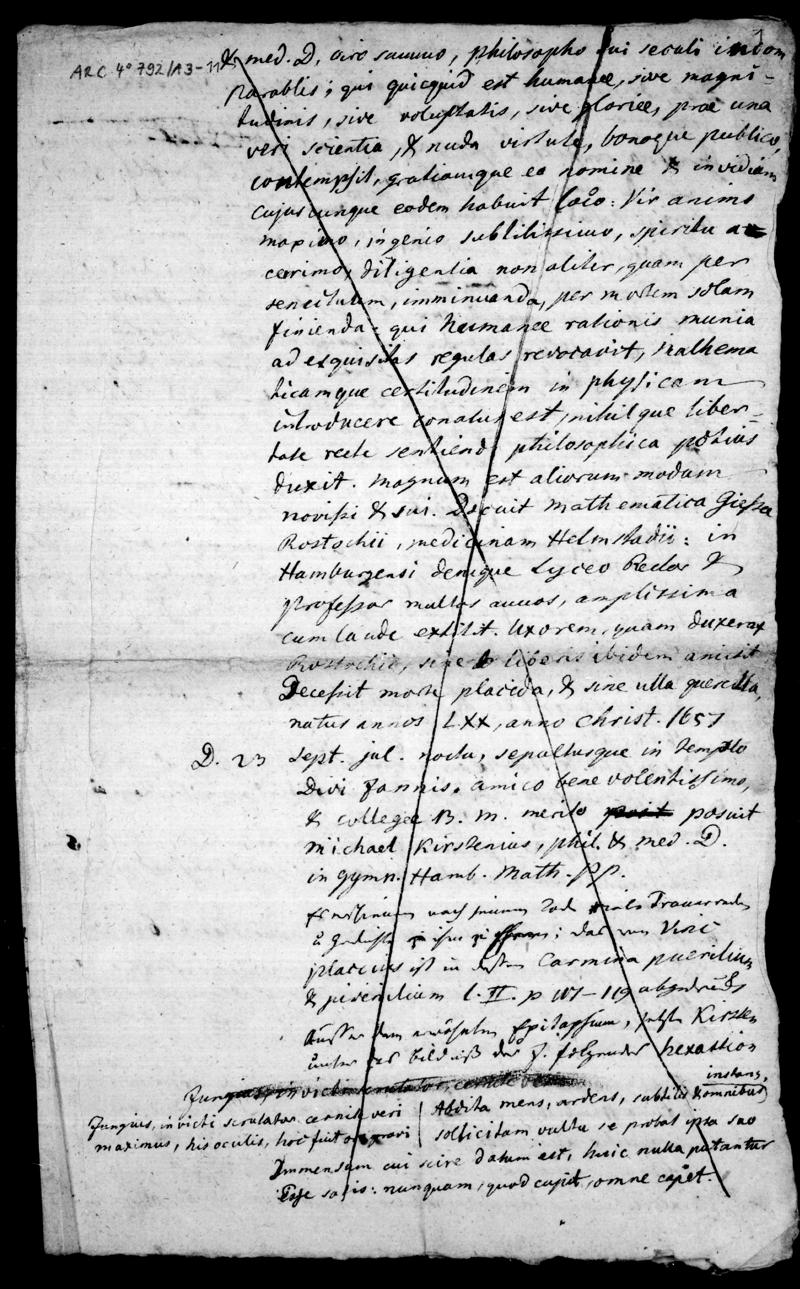 1
ARC 4° 792/A3-11
& med. D. viro summo, philosopho sui seculi incom
parabili; qui quicquid est humanae, sive magni-
tudinis, sive voluptatis, sive gloriae, prae una
veri scientia, & nuda virtute, bonoque publico,
contempsit, gratiamque eo nomine & invidiam
cujuscunque eodem habuit loco: Vir animo
maximo, ingenio subtilissimo, spiritu a
cerrimo, diligentia non aliter, quam per
senectutem, imminuenda, per mortem solam
finienda: qui humanae rationis munia
ad exquisitas regulas revocavit, mathema
ticamque certitudinem in physicam
introducere conatus est, nihilque liber-
tate recte sentiendi philosophica potius
duxit. Magnum est aliorum modum
novisse & sui. Docuit mathematica Giessa
Rostochii, medicinam Helmstadii: in
Hamburgensi denique Lyceo Rector &
professor multos annos, amplissima
cum laude extitit. Uxorem, quam duxerat
Rostochii, sine liberis ibidem amisit
Decessit morte placida, & sine ulla querella,
natus annos LXX, anno Christ. 1657
D. 23 Sept. jul. noctu, sepultusque in templo
Divi Joannis. amico benevolentissimo,
& collegae B. M. merito posuit
Michael Kirstenius, phil. & med. D.
in gymn. Hamb. Math. P.P.
nach seinem Tod viele Trauerreden
u. Gedichte; das von Vinc
placcius ist in dessen Carmina puerilium
& juvenilium l. II. p 117–119 abgedruckt
Ausser dem Epitaphium, setzte Kirsten
unter das Bildniß des J. folgendes hexastion
Jungius, invicti scrutator cernite veri
maximus, his oculis, hoc fuit ore gravi
Abdita mens, ardens, subtilis & omnibus instans,
sollicitam vultu se probat ipsa suo
Immensum cui scire datum est, huic nulla putantur
Esse satis: nunquam, quod cupit, omne capit.